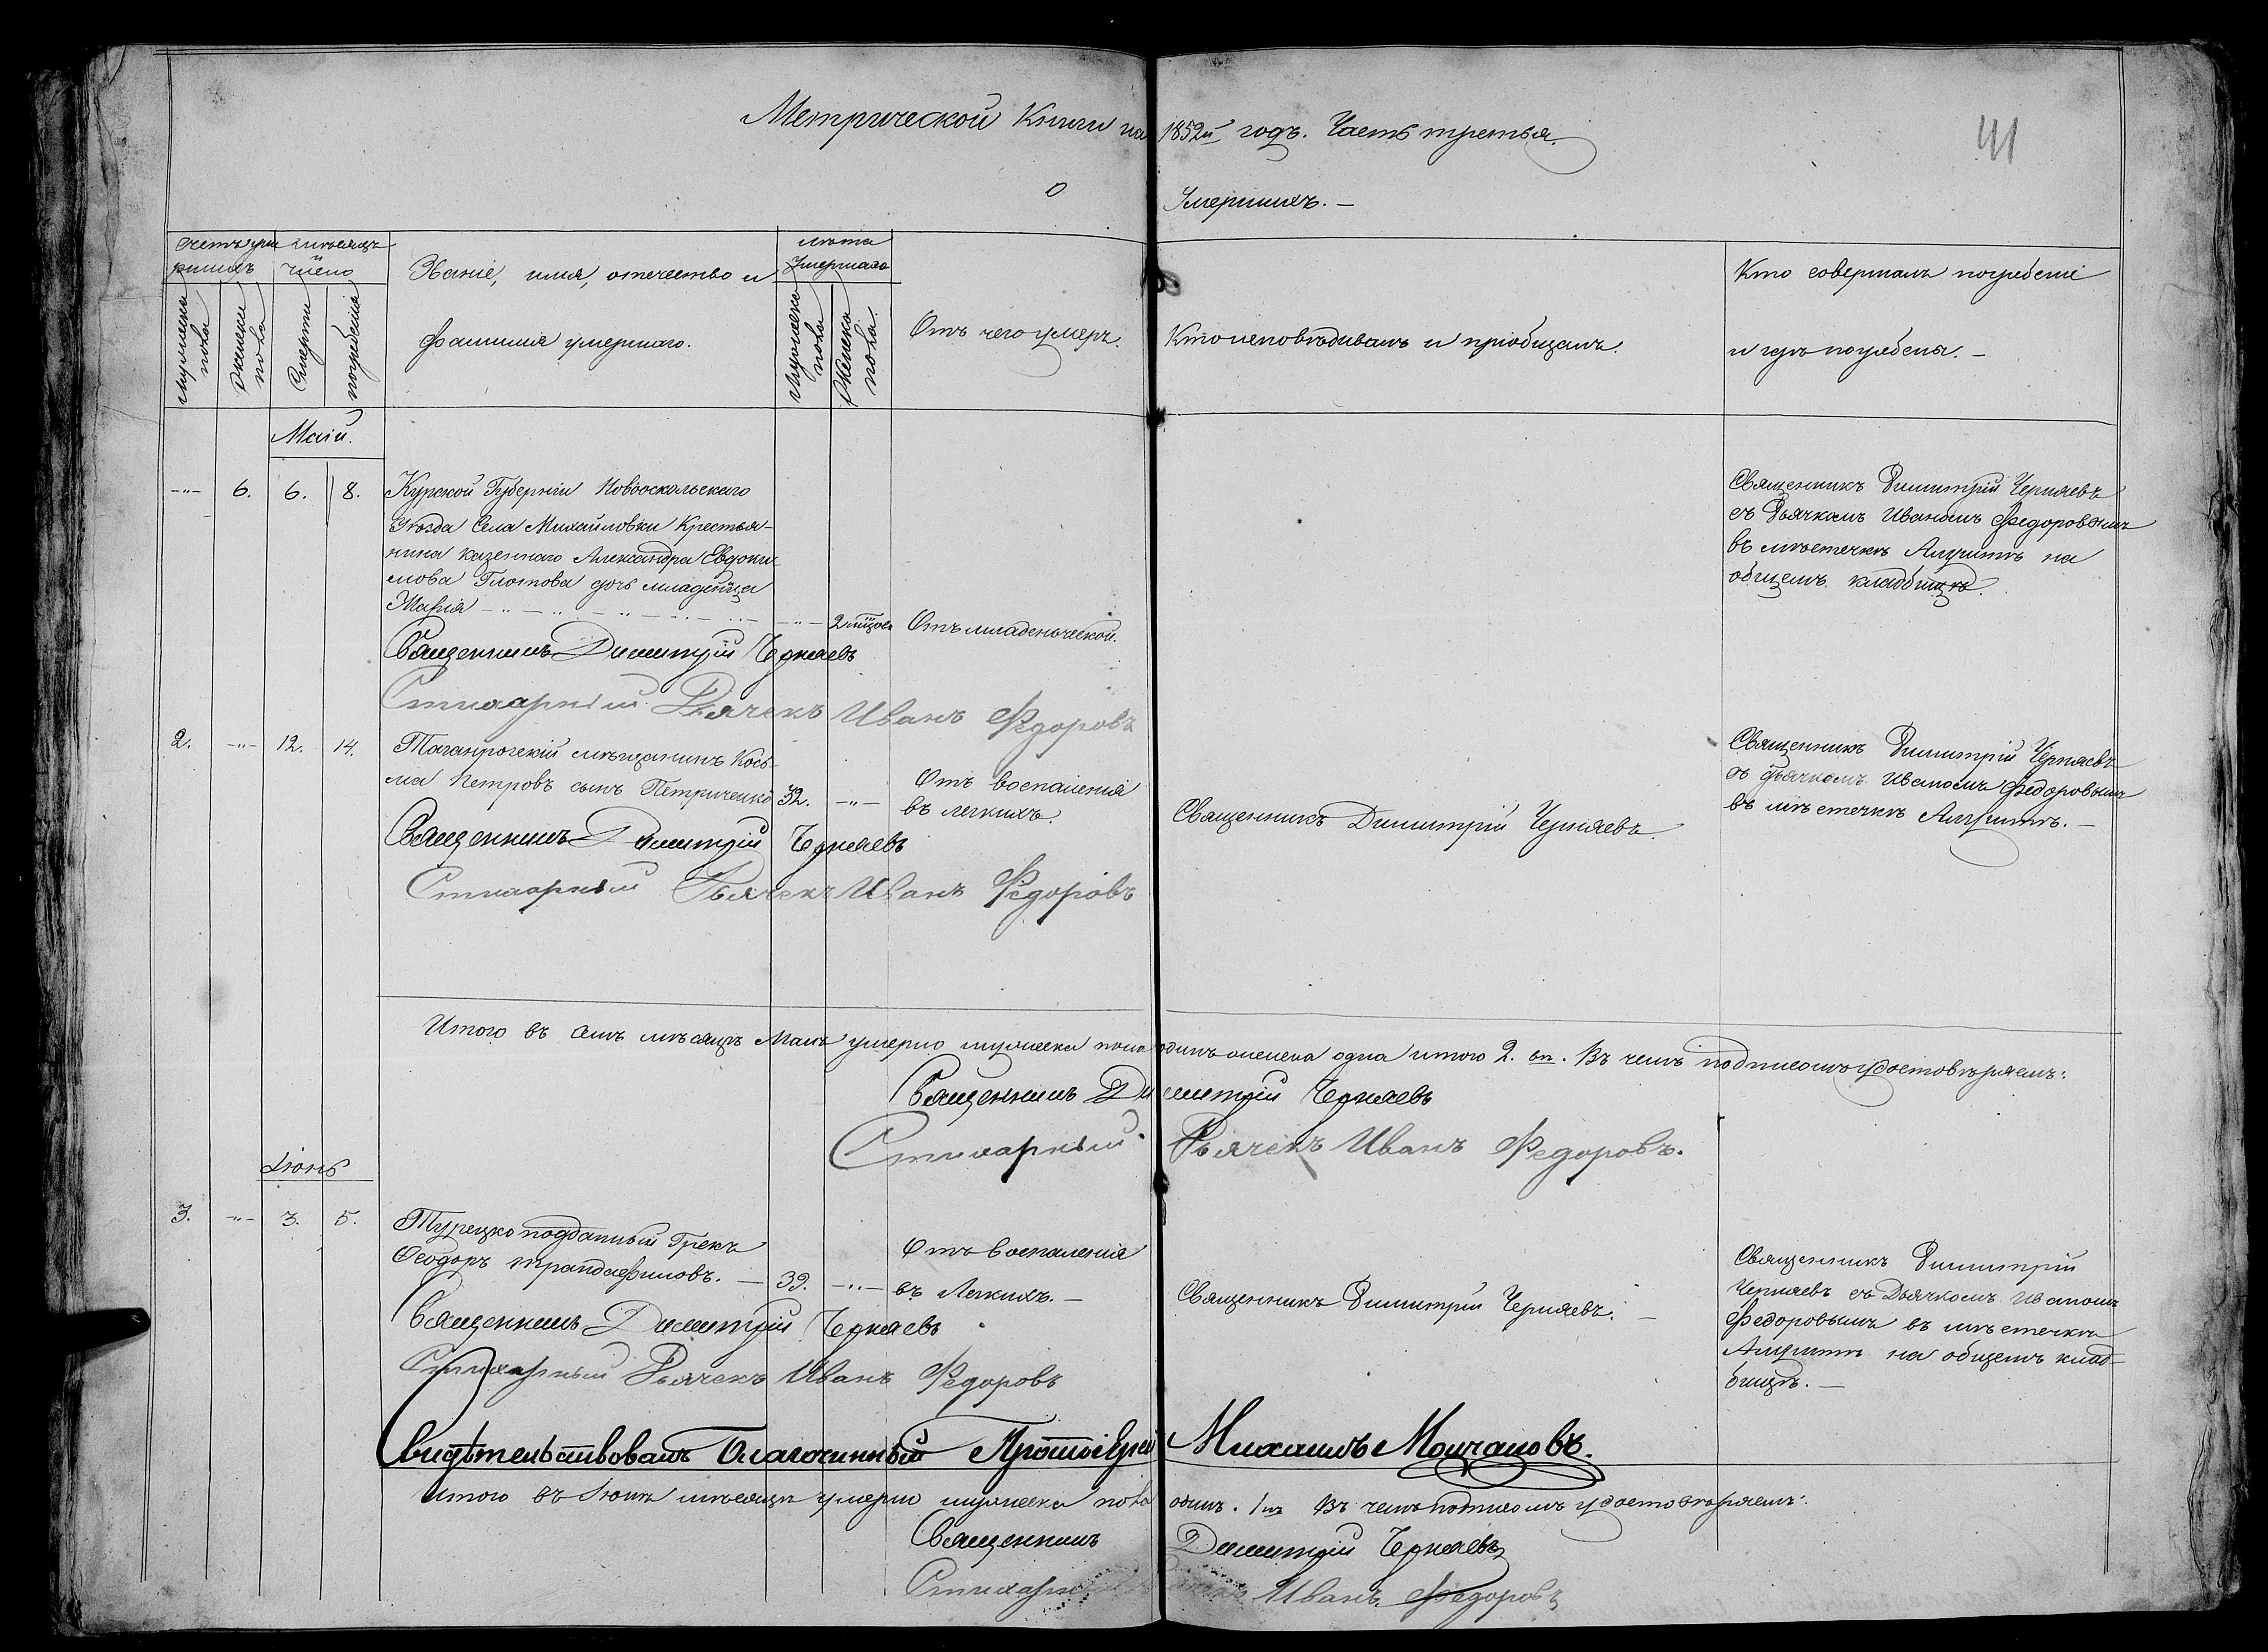 Метрической Книги на 1852й годъ. Часть третья.
41
О Умершихъ. —
Счетъ умершихъ
Мѣсяцъ и число
Званіе, имя, отечество и фамилія умершаго.
Лѣта умершаго
Отъ чего умеръ.
Кто исповѣдывалъ и пріобщалъ.
Кто совершалъ погребеніе и гдѣ погребены. —
Мужеска пола
Женска пола
Смерти
погребенія
Мужеска пола
Женска пола.
Маій.
-"- 6. 6. 8.
Курской Губерніи Новооскольскаго
Уѣзда Села Михайловки Крестья-
нина казеннаго Александра Евдоки-
мова Глотова дочь младенца
Марія
-"- 2 мѣсяцов
Отъ младенческой.
Священникъ Димитрій Черняевъ
съ Дьячкомъ Иваномъ Федоровымъ
въ мѣстечкѣ Алуштѣ на
общемъ кладбищѣ.
Священникъ Димитрій Черняевъ
Стихарный Дьячекъ Иванъ Федоровъ
2. -"- 12. 14.
Таганрогскій мѣщанинъ Козь-
ма Петровъ сынъ Петриченко
32. -"-
Отъ воспаленія
въ легкихъ.
Священникъ Димитрій Черняевъ.
Священникъ Димитрій Черняевъ
съ дьячкомъ Иваномъ Федоровымъ
въ мѣстечкѣ Алуштѣ. —
Священникъ Димитрій Черняевъ
Стихарный Дьячекъ Иванъ Федоровъ
Итого въ семъ мѣсяцѣ Маіѣ умерло мужеска пола одинъ женска одна итого 2. Въ чемъ подписомъ удостовѣряемъ:
Священникъ Димитрій Черняевъ
Стихарный Дьячекъ Иванъ Федоровъ.
Іюнь
3. -"- 3. 5.
Турецко подданный Грекъ
Ѳеодоръ Трандафиловъ. —
39. -"-
Отъ воспаленія
въ Легкихъ. —
Священникъ Димитрій Черняевъ. —
Священникъ Димитрій
Черняевъ съ Дьячкомъ Иваномъ
Федоровымъ въ мѣстечкѣ
Алуштѣ на общемъ клад-
бищѣ. —
Священникъ Димитрій Черняевъ
Стихарный Дьячекъ Иванъ Федоровъ
Свидѣтельствовалъ Благочинный Протоіерей Михаилъ Молчановъ.
Итого въ Іюнѣ мѣсяцѣ умерло мужеска пола одинъ. 1нъ Въ чемъ подписомъ удостовѣряемъ:
Священникъ Димитрій Черняевъ
Стихарный Дьячекъ Иванъ Федоровъ